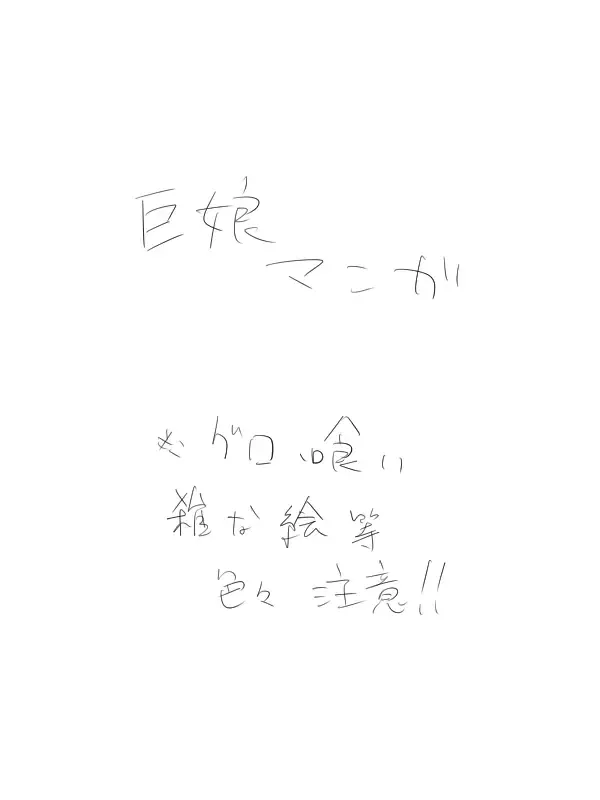 巨娘
マンガ
※ゲロ、喰い
雑な絵等
色々注意!!